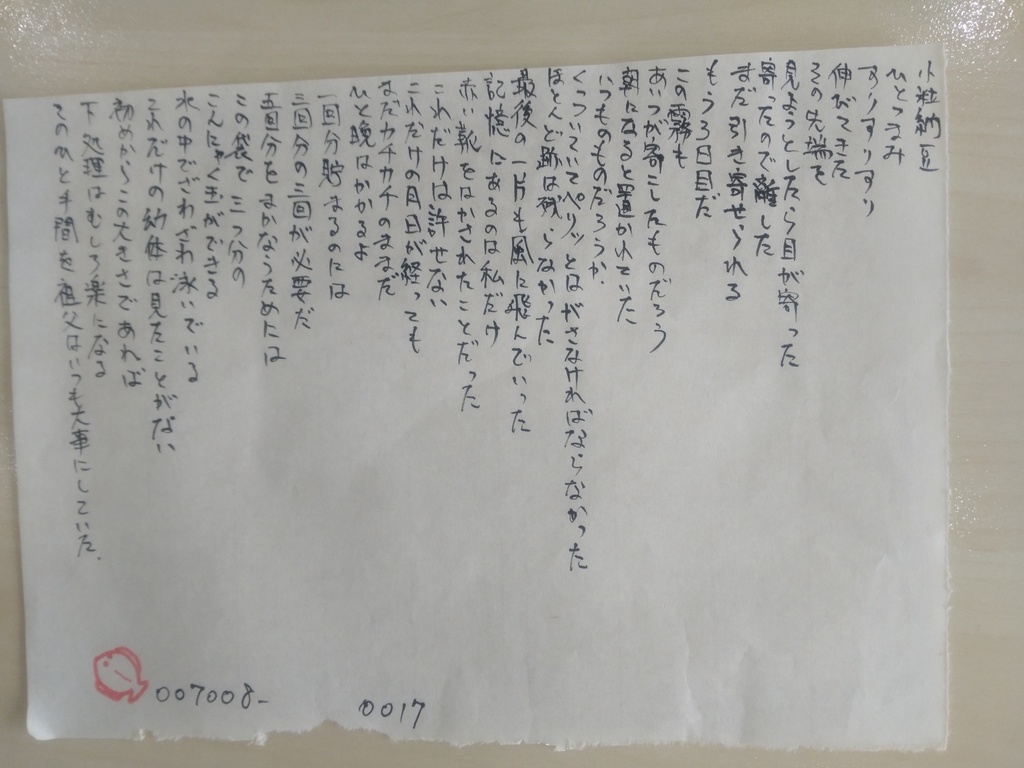 小粒納豆
ひとつまみ
すりすりすり
伸びてきた
その先端を
見ようとしたら目が寄った
寄ったので離した
まだ引き寄せられる
もう3日目だ
この霧も
あいつが寄こしたものだろう
朝になると置かれていた
いつものものだろうか.
くっついていてペリッとはがさなければならなかった
ほとんど跡は残らなかった
最後の一片も風に飛んでいった
記憶にあるのは私だけ
赤い靴をはかされたことだった
これだけは許せない
これだけの月日が経っても
まだカチカチのままだ
ひと晩はかかるよ
一回分貯まるのには
三回分の三回が必要だ
五回分をまかなうためには
この袋で三つ分の
こんにゃく玉ができる
水の中でざわざわ泳いでいる
これだけの納体は見たことがない
初めからこの大きさであれば
下処理はむしろ楽になる
そのひと手間を祖父はいつも大事にしていた.
007008-
0017